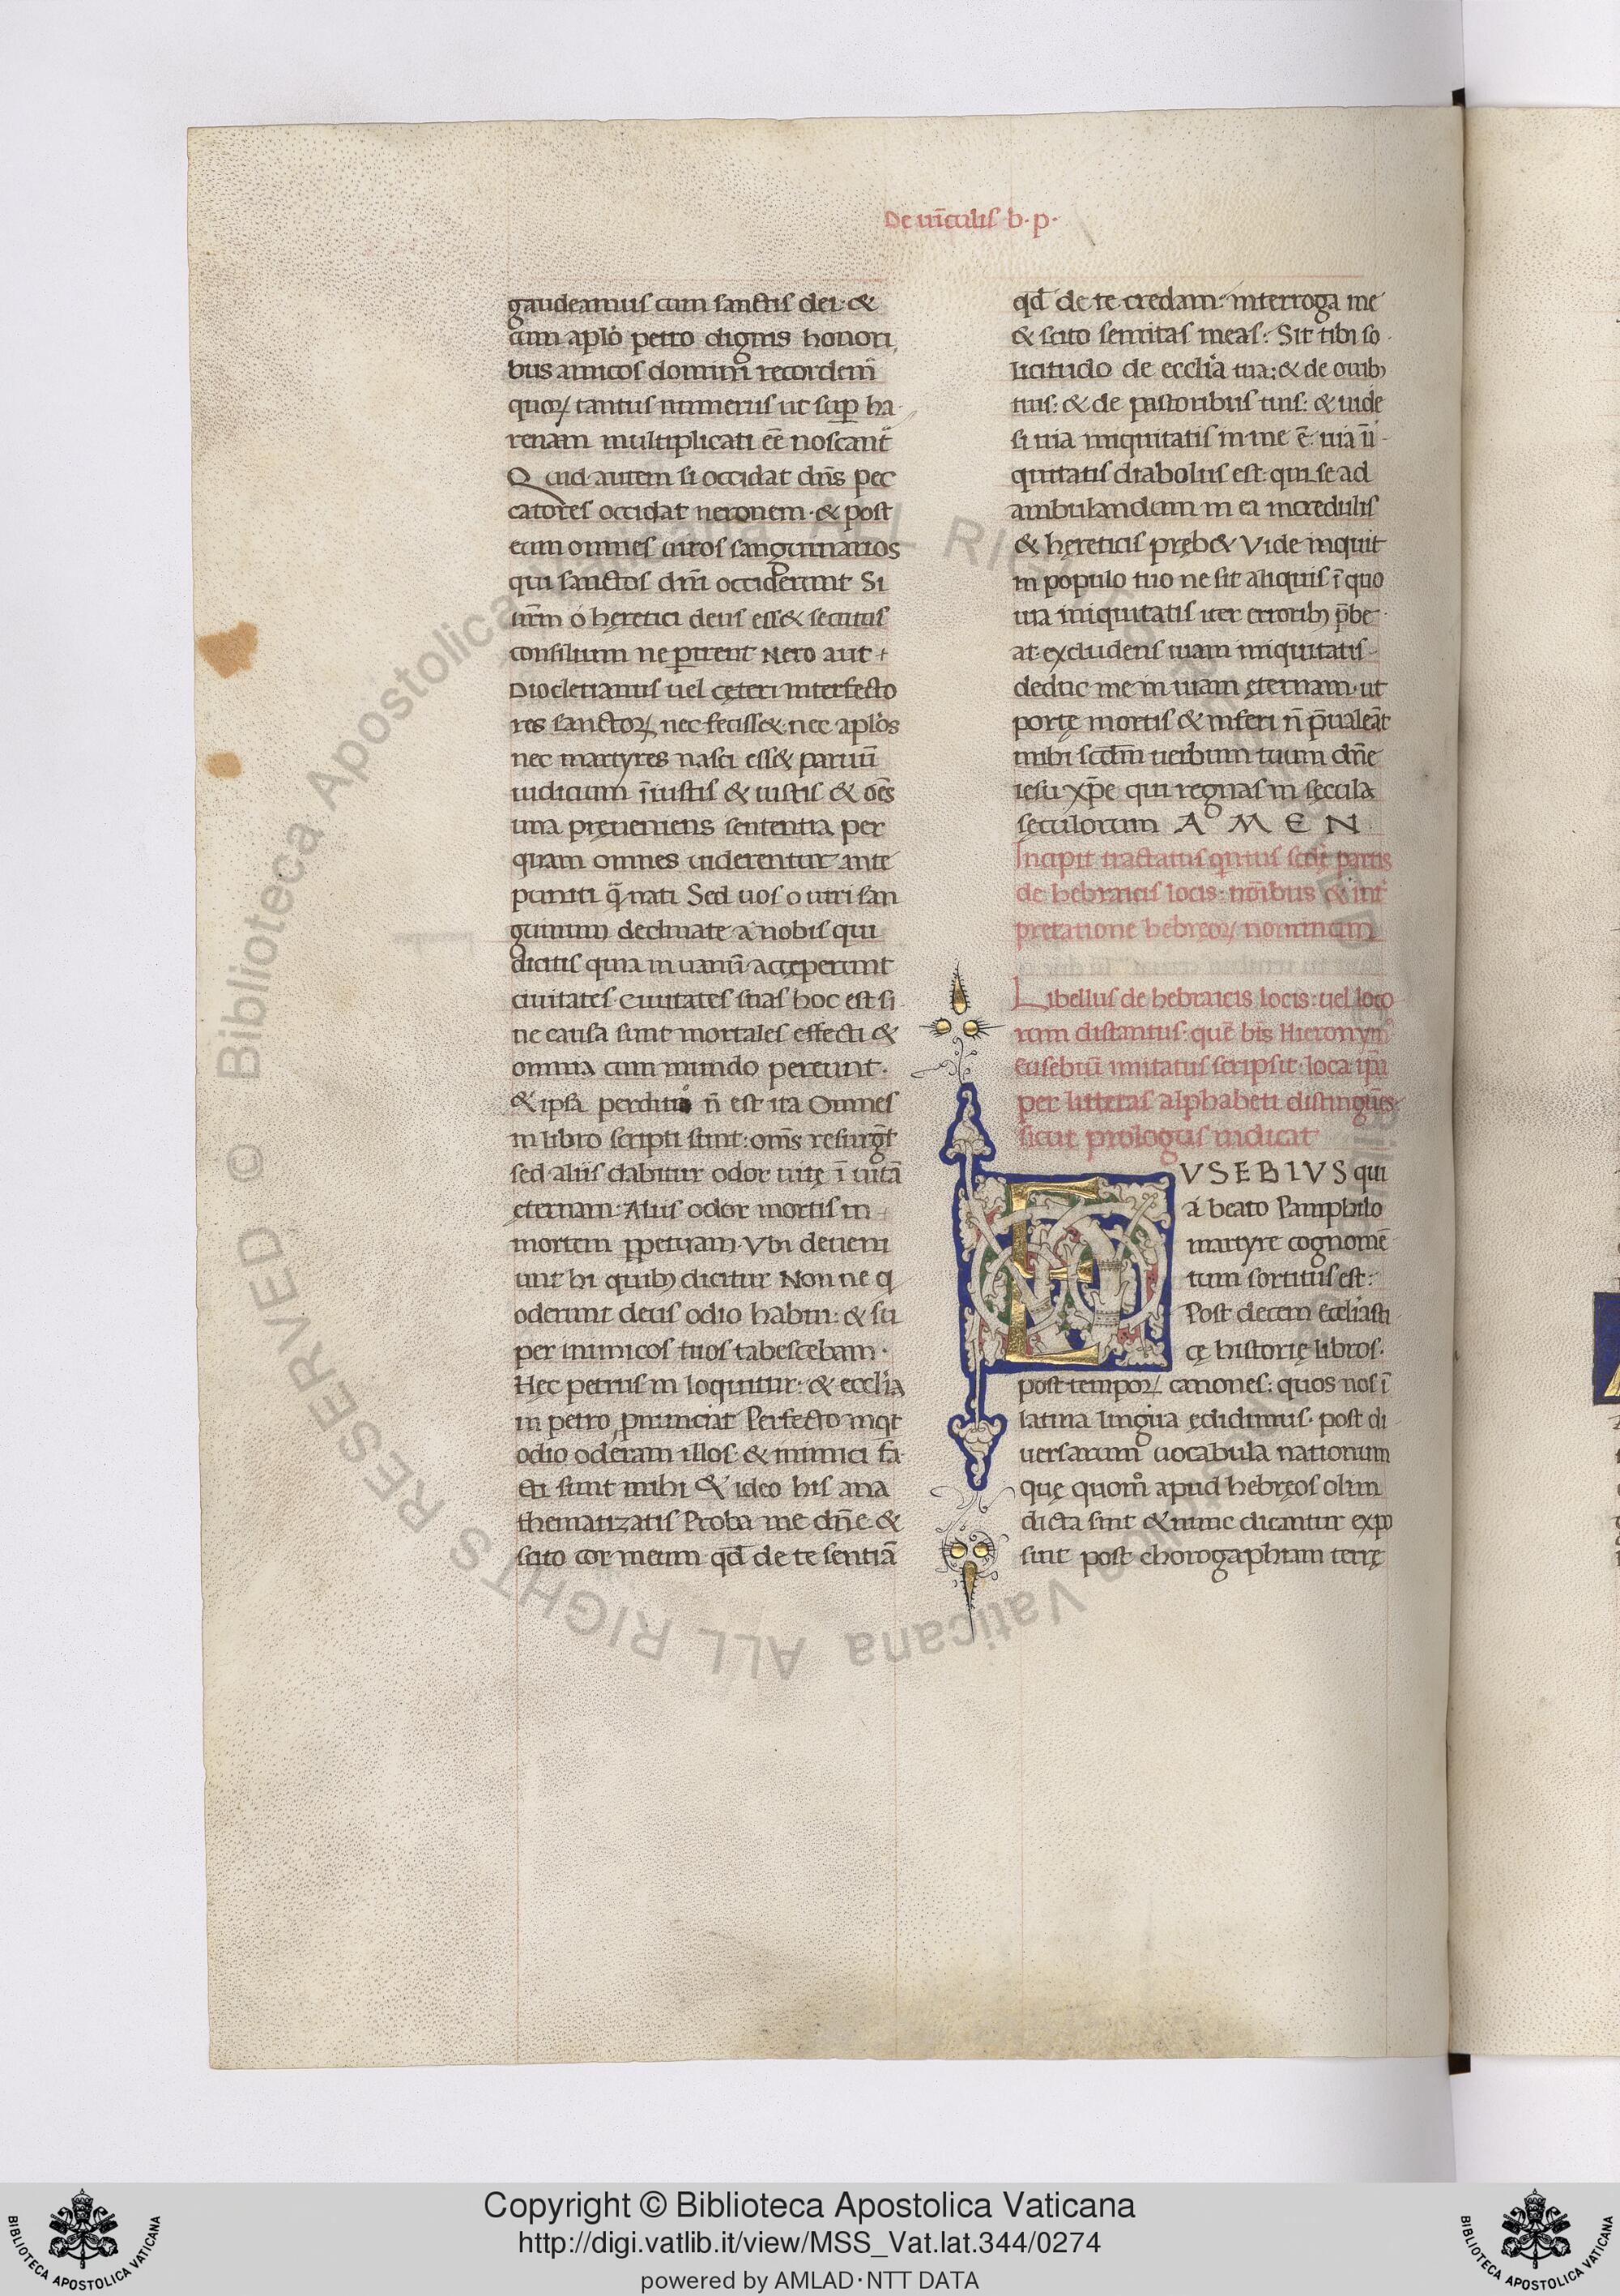 De uīculis b. p.
gaudeamus cum sanctis dei. &
cum aplo petro dignis honori
bus amicos domini recordem̄
quoꝝ tantus numerus ut sup ha
renam multiplicati eē noscant̄
Quid autem si occidat dn̄s pec
catores occidat neronem. & post
eum omnes uiros sanguinarios
qui sanctos dn̄i occiderunt Si
ur̄m o hęretici deus ess& secutus
consilium ne perirent Nero aut
Diocletianus uel cęteri interfecto
res sanctoꝝ nec feciss& nec aplos
nec martyres nasci ess& paruū
iudicium īiustis & iustis & oēs
una pręueniens sententia per
quam omnes uiderentur ante
puniti q̄ nati Sed uos o uiri san
guinum declinate a nobis qui
dicitis quia in uanū accęperunt
ciuitates Ciuitates suas hoc est si
ne causa sunt mortales effecti &
omnia cum mundo pereunt.
& ipsa perditio n̄ est ita Omnes
in libro scripti sunt: om̄s resurgēt
sed aliis dabitur odor uitę ī uitā
eternam: Aliis odor mortis in
mortem ꝑpetuam. Vbi deueni
unt hi quibꝫ dicitur Non ne q
oderunt deus odio habui: & su
per inimicos tuos tabescebam.
Hec petrus in loquitur: & ecclia
in petro pnunciat Perfecto inqt
odio oderam illos. & inimici fa
cti sunt mihi & ideo his ana
thematizatis Proba me dn̄e &
scito cor meum qd̄ de te sentiā
qd̄ de te credam: interroga me
& scito semitas meas: Sit tibi so
licitudo de ecclia tua: & de ouibꝫ
tuis: & de pastoribus tuis: & uide
si uia iniquitatis in me ē: uia īi
quitatis diabolus est: qui se ad
ambulandum in ea incredulis
& hęreticis pręb& Vide inquit
in populo tuo ne sit aliquis ī quo
uia iniquitatis iter erroribꝫ p̄be
at. excludens uiam iniquitatis
deduc me in uiam ęternam. ut
portę mortis & inferi n̄ p̄ualeāt
mihi scd̄m uerbum tuum dn̄e
iesu xp̄e qui regnas in sęcula
sęculorum A M E N
Incipit tractatus quintus scd̄e partis
de hebraicis locis: noībus & int
pretatione hebręoꝝ nominum
Libellus de hebraicis locis: uel loco
rum distantiis: quē bt̄s Hieronym
eusebiū imitatus scripsit: loca ip̄a
per litteras alphabeti distinguēs
sicut prologus indicat
EVSEBIVS qui
a beato Pamphilo
martyre cognomē
tum sortitus est:
Post decem Eccliasti
cę historię libros.
post tempoꝝ canones: quos nos ī
latina lingua ędidimus. post di
uersarum uocabula nationum
quę quom̊ apud hebręos olim
dicta sint & nunc dicantur expo
suit post chorogaphiam terrę
Copyright © Biblioteca Apostolica Vaticana
http://digi.vatlib.it/view/MSS_Vat.lat.344/0274
powered by AMLAD·NTT DATA
BIBLIOTECA APOSTOLICA VATICANA
BIBLIOTECA APOSTOLICA VATICANA
© Biblioteca Apostolica Vaticana ALL RIGHTS RESERVED